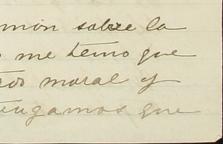 mión sobre la
me temo que
moral y
ngamos que